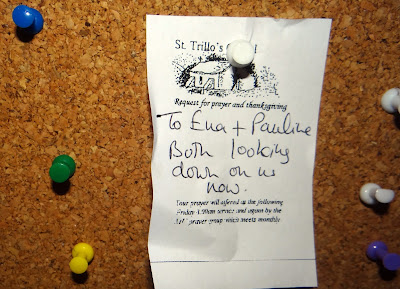 St. Trillo's
Request for prayer and thanksgiving
To Ena + Pauline
Both looking
down on us
now.
Your prayer will offered at the following
Friday service and again by the
prayer group which meets monthly